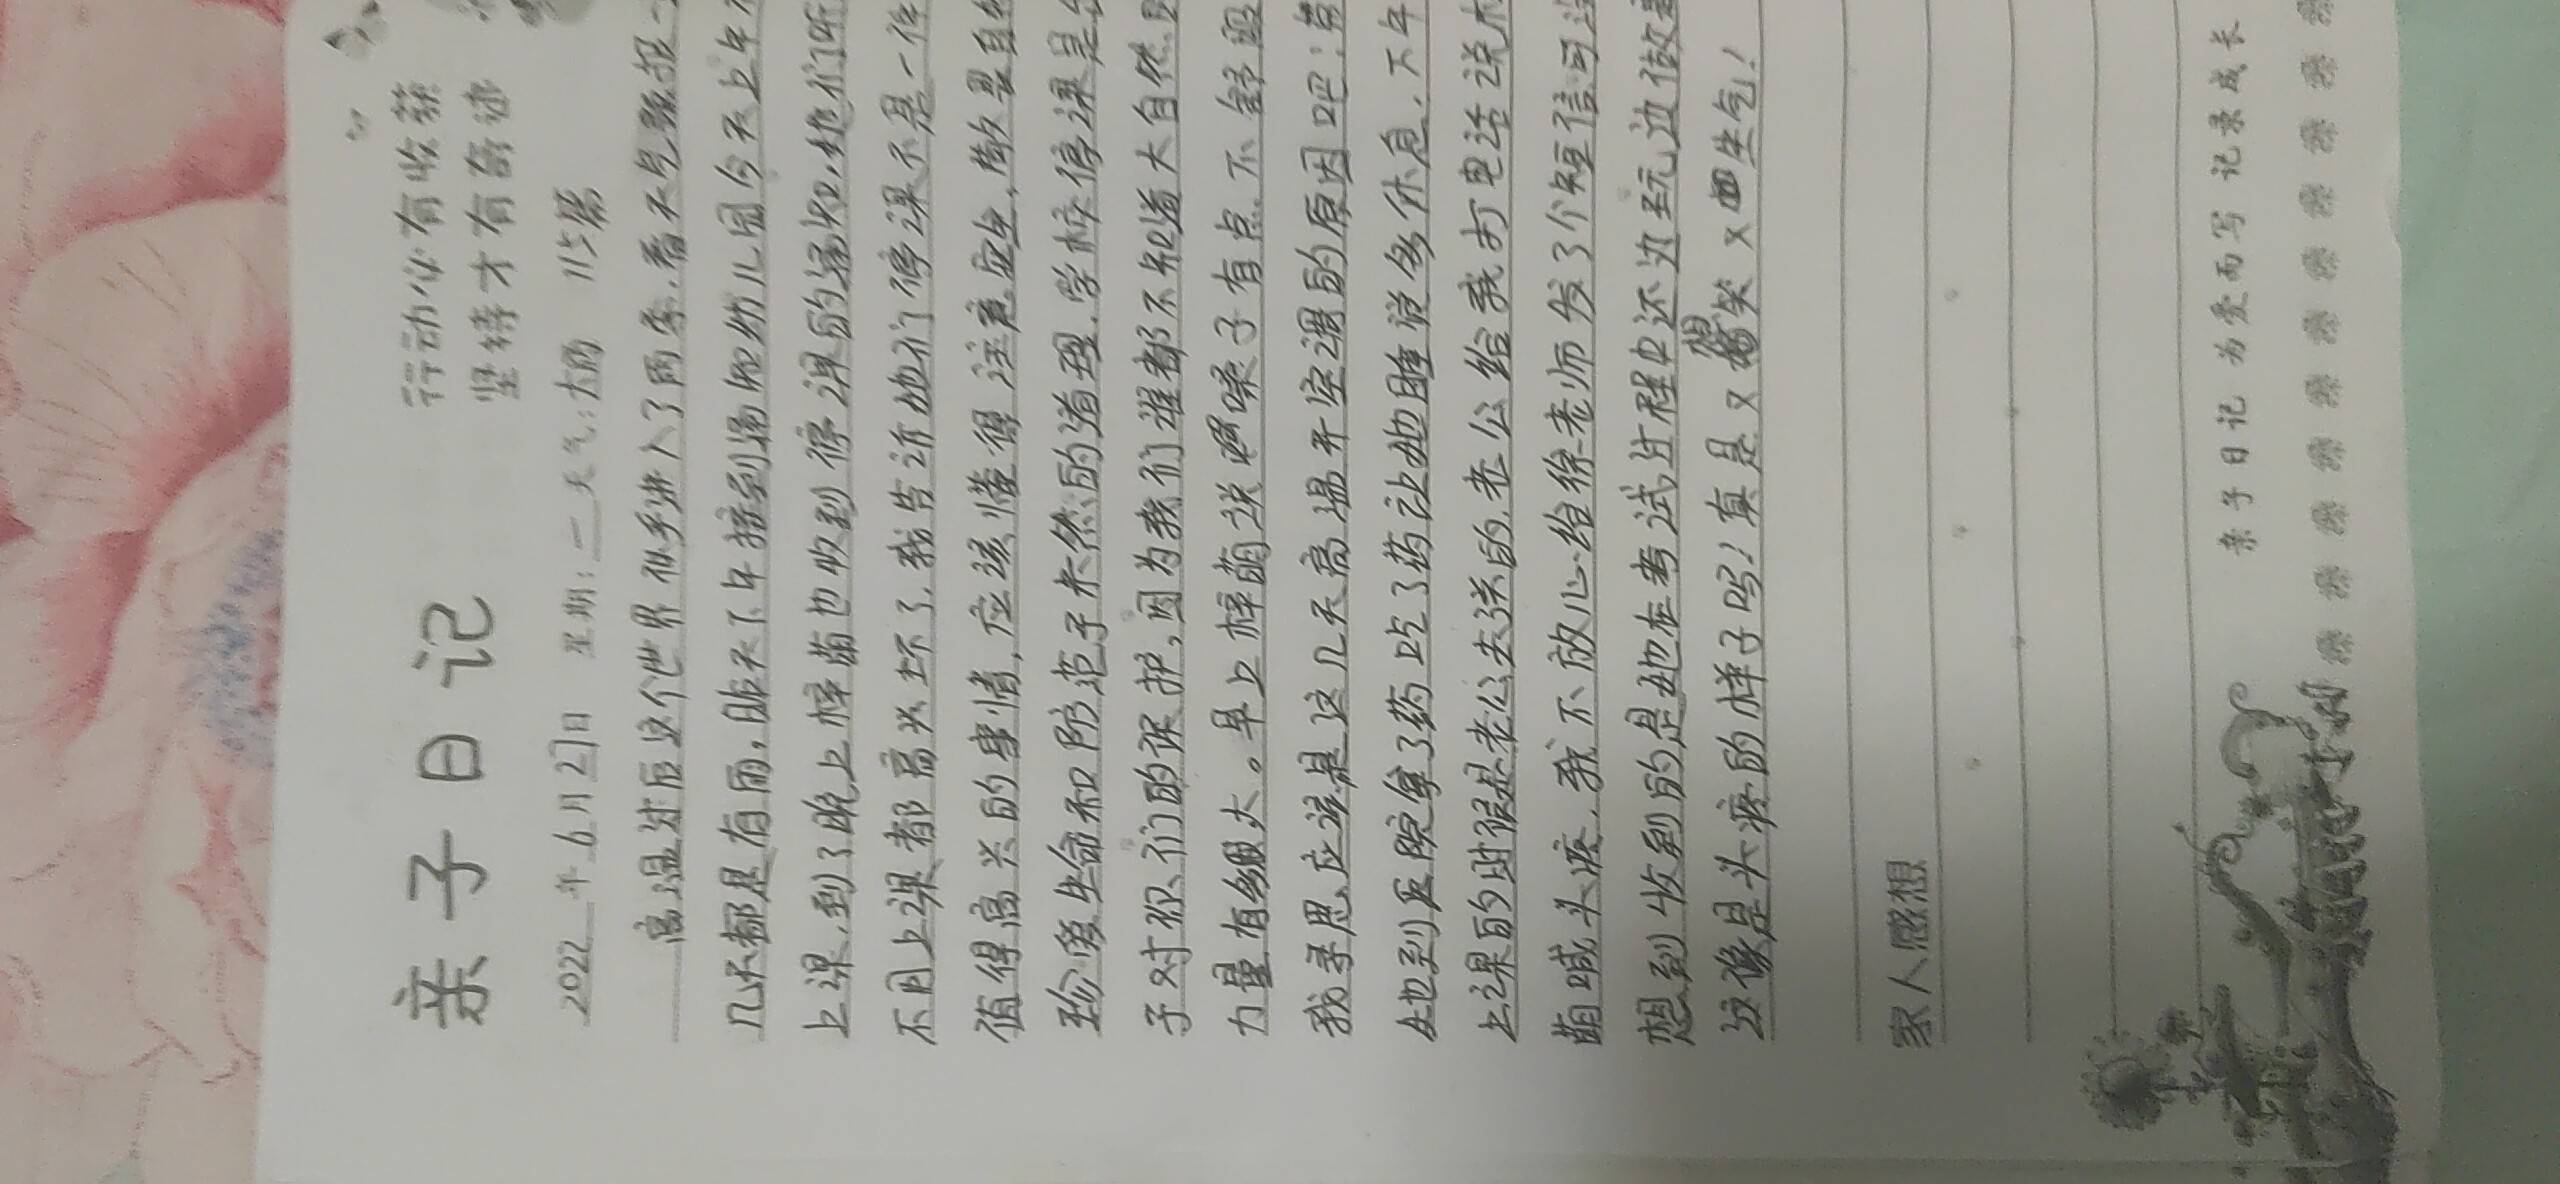 亲子日记
行动必有收获
坚持才有奇迹
2022年6月27日 星期:二 天气:大雨 115篇
高温过后这个世界似乎进入了雨季.看天气预报一
几天都是有雨,昨天下午接到通知幼儿园今天上午
上课.到了晚上梓萌也收到停课的通知.她们听
不用上课都高兴坏了.我告诉她们停课不是一件
值得高兴的事情,应该懂得注意应生,敬畏自
珍爱生命和防范于未然的道理.学校停课是
于对你们的保护,因为我们谁都不知道大自然
力量有多大。早上梓萌说嗓子有点不舒服
我寻思应该是这几天高温开空调的原因吧!
她到医院拿了药吃了药让她睡觉多休息.下午
上课的时候是老公去送的.老公给我打电话说
萌喊头疼.我不放心给徐老师发了个短信可
想到收到的是她在考试过程中还边玩边做
这像是头疼的样子吗!真是又想笑又生气!
家人感想
亲子日记 为爱而写 记录成长